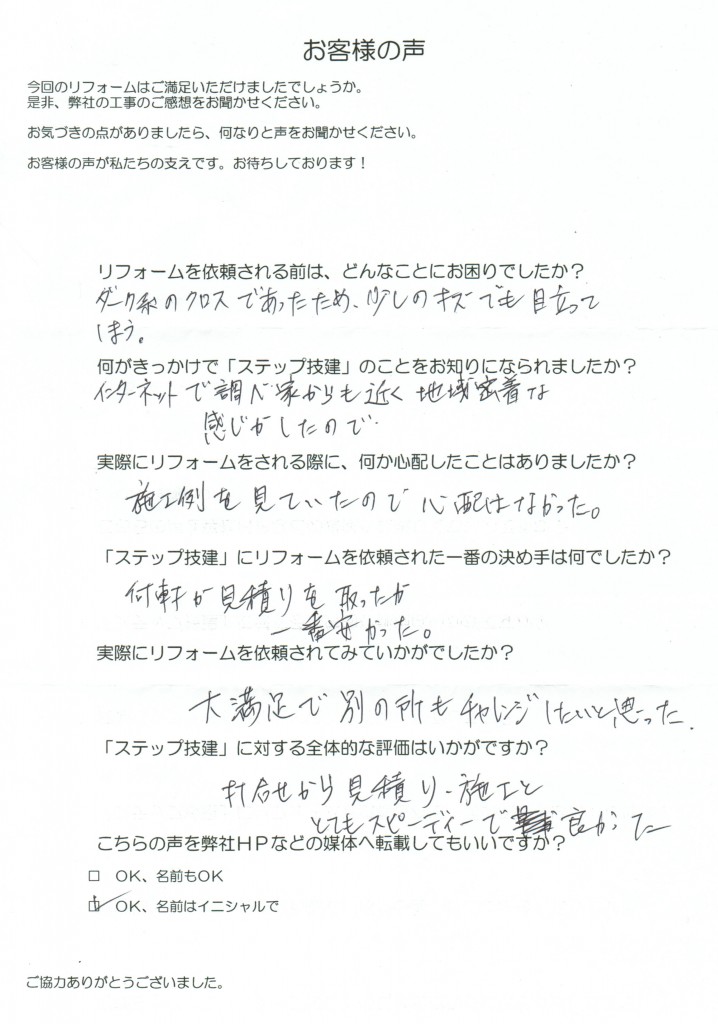 お客様の声
今回のリフォームはご満足いただけましたでしょうか。
是非、弊社の工事のご感想をお聞かせください。
お気づきの点がありましたら、何なりと声をお聞かせください。
お客様の声が私たちの支えです。お待ちしております！
リフォームを依頼される前は、どんなことにお困りでしたか？
ダーク系のクロスであったため、少しのキズでも目立って
しまう。
何がきっかけで「ステップ技建」のことをお知りになられましたか？
インターネットで調べ家からも近く地域密着な
感じがしたので.
実際にリフォームをされる際に、何か心配したことはありましたか？
施工例を見ていたので心配はなかった。
「ステップ技建」にリフォームを依頼された一番の決め手は何でしたか？
何軒か見積りを取ったが
一番安かった。
実際にリフォームを依頼されてみていかがでしたか？
大満足で別の所もチャレンジしたいと思った.
「ステップ技建」に対する全体的な評価はいかがですか？
打合せから見積り、施工と
とてもスピーディーで良かった
こちらの声を弊社ＨＰなどの媒体へ転載してもいいですか？
□ OK、名前もOK
☑ OK、名前はイニシャルで
ご協力ありがとうございました。